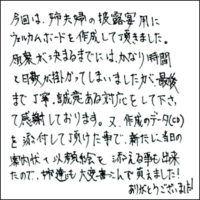 今回は、姉夫婦の披露宴用に
ウェルカムボードを作成して頂きました。
原案が決まるまでには、かなり時間
と日数が掛かってしまいましたが、最後
まで丁寧、誠意ある対応をして下さっ
て感謝しております。又、作成のデータ(CD)
を添付して頂けた事で、新たに当日の
案内状へ以頼絵を添える事も出来
たので、姉達も大変喜こんで貰えました!
ありがとうございました!